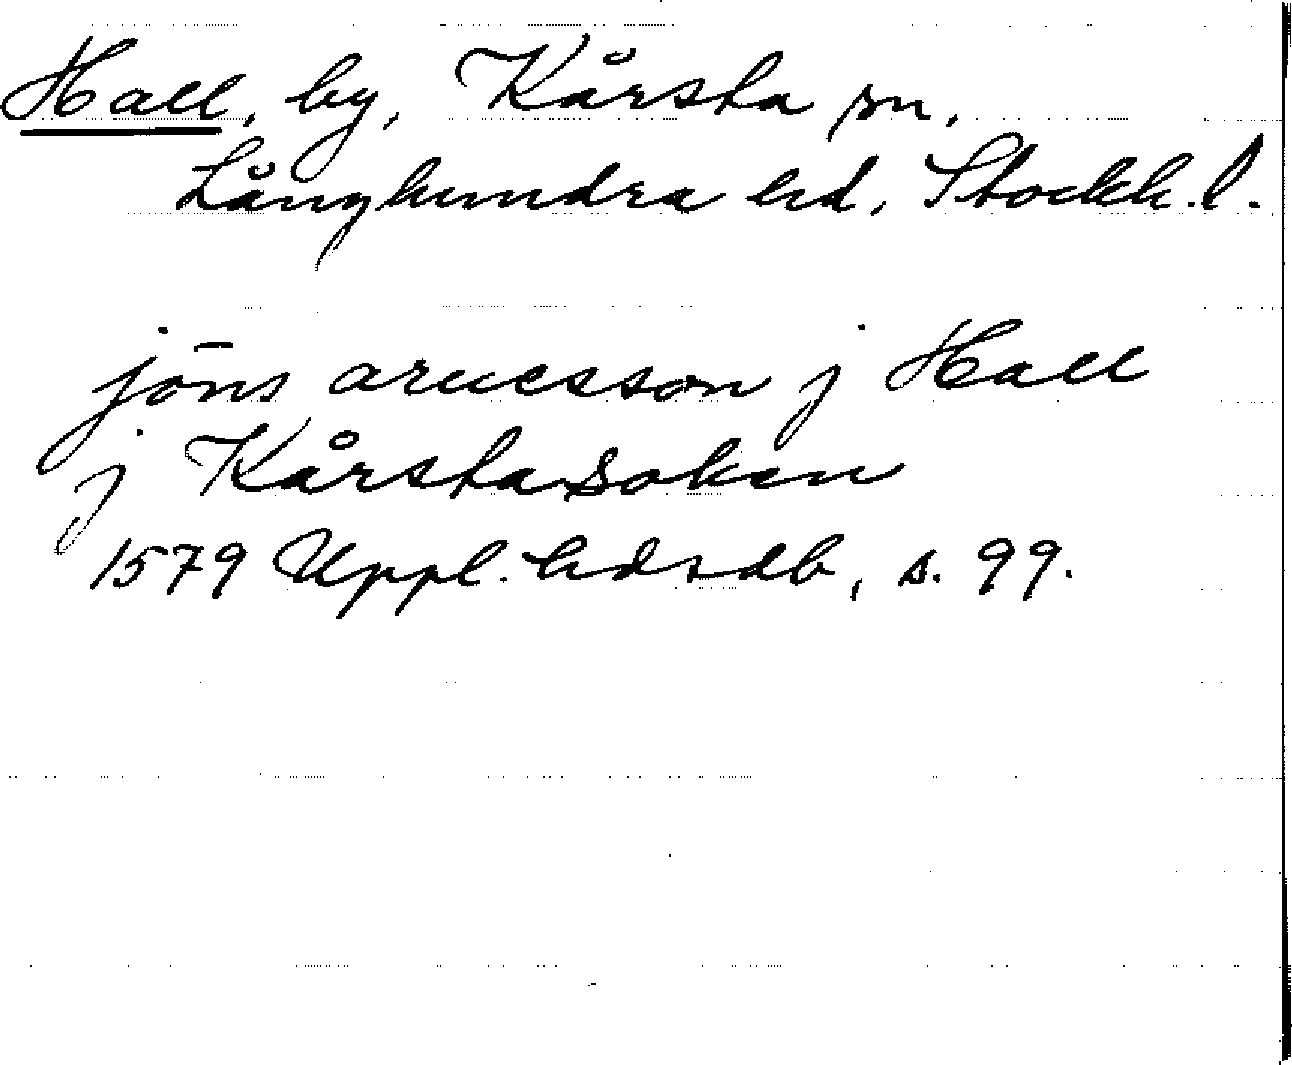 Hall, by, Kårsta sn,
Långhundra hd, Stockh. l.
jöns arnesson j Hall
j Kårsta soken
1579 Uppl. hdrdb, s. 99.